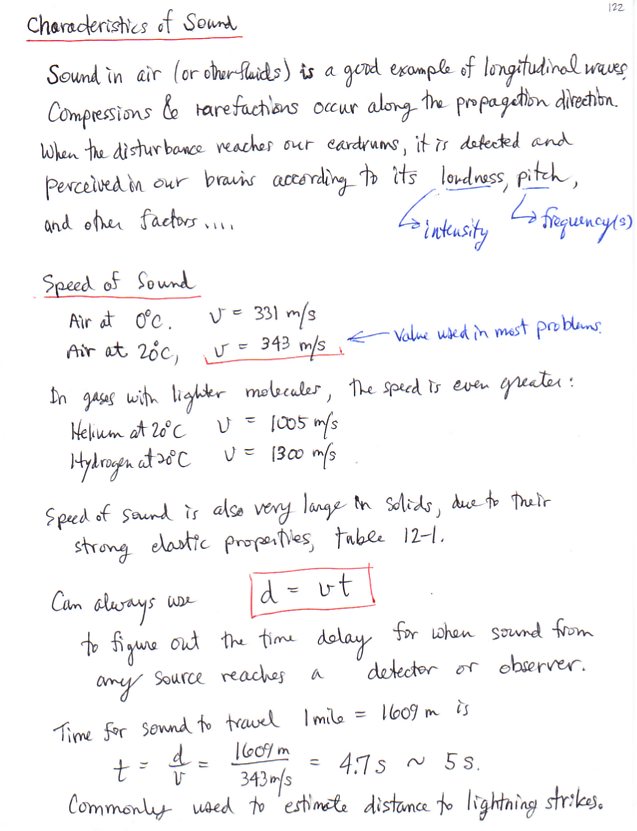 122
Characteristics of Sound
Sound in air (or other fluids) is a good example of longitudinal waves.
Compressions & rarefactions occur along the propagation direction.
When the disturbance reaches our eardrums, it is detected and
perceived in our brains according to its loudness, pitch,
and other factors ....
↳ intensity
↳ frequency(s)
Speed of Sound
Air at 0°C. v = 331 m/s
Air at 20°C, v = 343 m/s ← Value used in most problems.
In gases with lighter molecules, the speed is even greater:
Helium at 20°C v = 1005 m/s
Hydrogen at 20°C v = 1300 m/s.
Speed of sound is also very large in solids, due to their
strong elastic properties, table 12-1.
Can always use d = vt
to figure out the time delay for when sound from
any source reaches a detector or observer.
Time for sound to travel 1 mile = 1609 m is
t = d/v = 1609 m / 343 m/s = 4.7 s ~ 5 s.
Commonly used to estimate distance to lightning strikes.